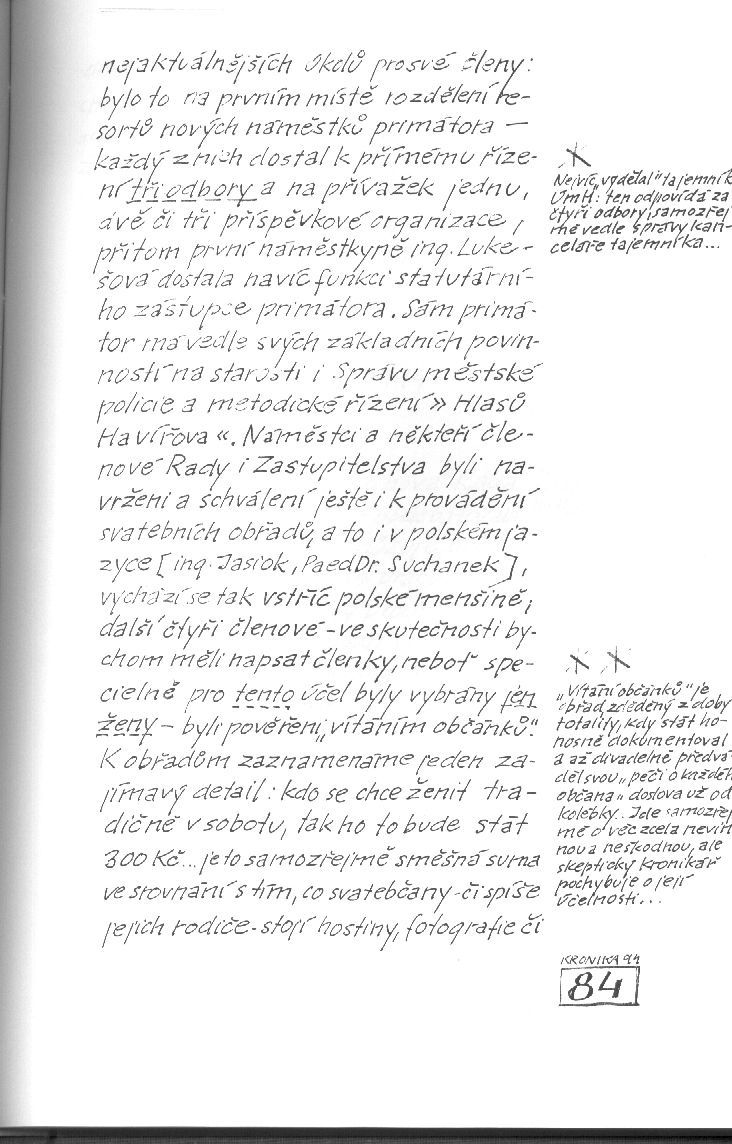 nejaktuálnějších úkolů pro své členy:
bylo to na prvním místě rozdělení re-
sortů nových náměstků primátora —
každý z nich dostal k přímému říze-
ní tři odbory a na přívažek jednu,
dvě či tři příspěvkové organizace,
přitom první náměstkyně ing. Luke-
šová dostala navíc funkci statutární-
ho zástupce primátora. Sám primá-
tor má vedle svých základních povin-
ností na starosti i Správu městské
policie a metodické řízení » Hlasů
Havířova «. Náměstci a někteří čle-
nové Rady i Zastupitelstva byli na-
vrženi a schváleni ještě i k provádění
svatebních obřadů, a to i v polském ja-
zyce [ing. Jasiok, PaedDr. Suchanek],
vychází se tak vstříc polské menšině;
další čtyři členové - ve skutečnosti by-
chom měli napsat členky, neboť spe-
cielně pro tento účel byly vybrány jen
ženy - byli pověřeni „vítáním občánků."
K obřadům zaznamenáme jeden za-
jímavý detail: kdo se chce ženit tra-
dičně v sobotu, tak ho to bude stát
300 Kč... je to samozřejmě směšná suma
ve srovnání s tím, co svatebčany - či spíše
jejich rodiče - stojí hostiny, fotografie či
*
Nejvíc „vydělal" tajemník
ÚmH: ten odpovídá za
čtyři odbory, samozřej
mě vedle správy kan-
celáře tajemníka...
* *
„Vítání občánků" je
obřad, zděděný z doby
totality, kdy stát ho-
nosně dokumentoval
a až divadelně předvá
děl svou „péči o každéh
občana" doslova už od
kolébky. Jde samozřej
mě o věc zcela nevin
nou a neškodnou, ale
skeptický kronikář
pochybuje o její
účelnosti...
KRONIKA 94
84